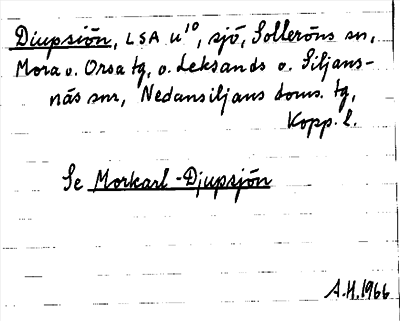 Diupsiön, LSA u¹⁰, sjö, Solleröns sn,
Mora o. Orsa tg, o. Leksands o. Siljans-
näs snr, Nedansiljans doms. tg,
Kopp. l.
Se Morkarl-Djupsjön
A.H. 1966